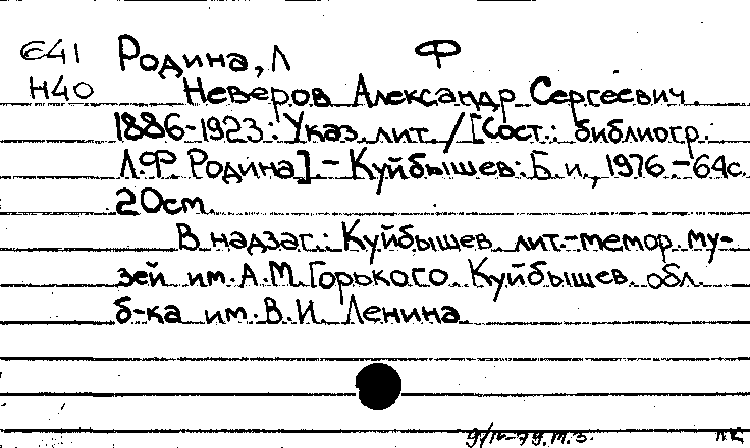 Е41 Родина, Л Ф
Н40 Неверов Александр Сергеевич.
1886-1923: Указ. лит. / [Сост.: библиогр.
Л.Ф. Родина]. - Куйбышев: Б. и., 1976. - 64с.
20см.
В надзаг.: Куйбышев. лит.-мемор. му-
зей им. А.М. Горького. Куйбышев. обл.
б-ка им. В.И. Ленина